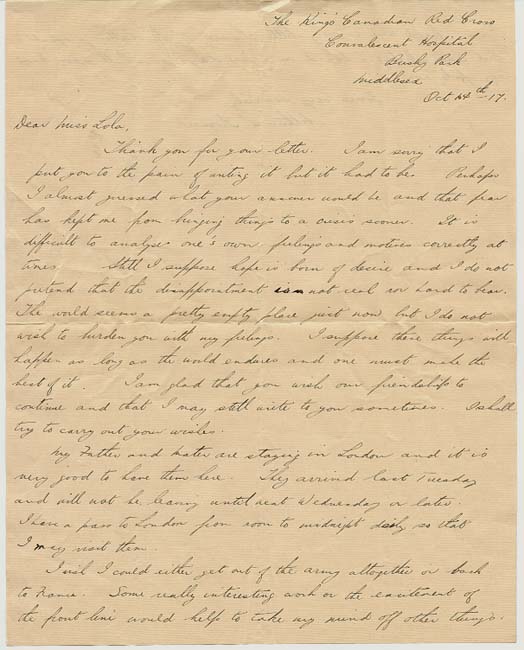 The King's Canadian Red Cross
Convalescent Hospital
Bushy Park
Middlesex
Oct 14th -17.
Dear Miss Lola,
Thank you for your letter. I am sorry that I
put you to the pain of writing it but it had to be. Perhaps
I almost guessed what your answer would be and that fear
has kept me from bringing things to a crisis sooner. It is
difficult to analyse one's own feelings and motives correctly at
times. Still I suppose hope is born of desire and I do not
pretend that the disappointment is not real nor hard to bear.
The world seems a pretty empty place just now but I do not
wish to burden you with my feelings. I suppose these things will
happen as long as the world endures and one must make the
best of it. I am glad that you wish our friendship to
continue and that I may still write to you sometimes. I shall
try to carry out your wishes.
My Father and Mater are staying in London and it is
very good to have them here. They arrived last Tuesday
and will not be leaving until next Wednesday or later.
I have a pass to London from noon to midnight daily so that
I may visit them.
I wish I could either get out of the army altogether or back
to France. Some really interesting work or the excitement of
the front line would help to take my mind off other things.